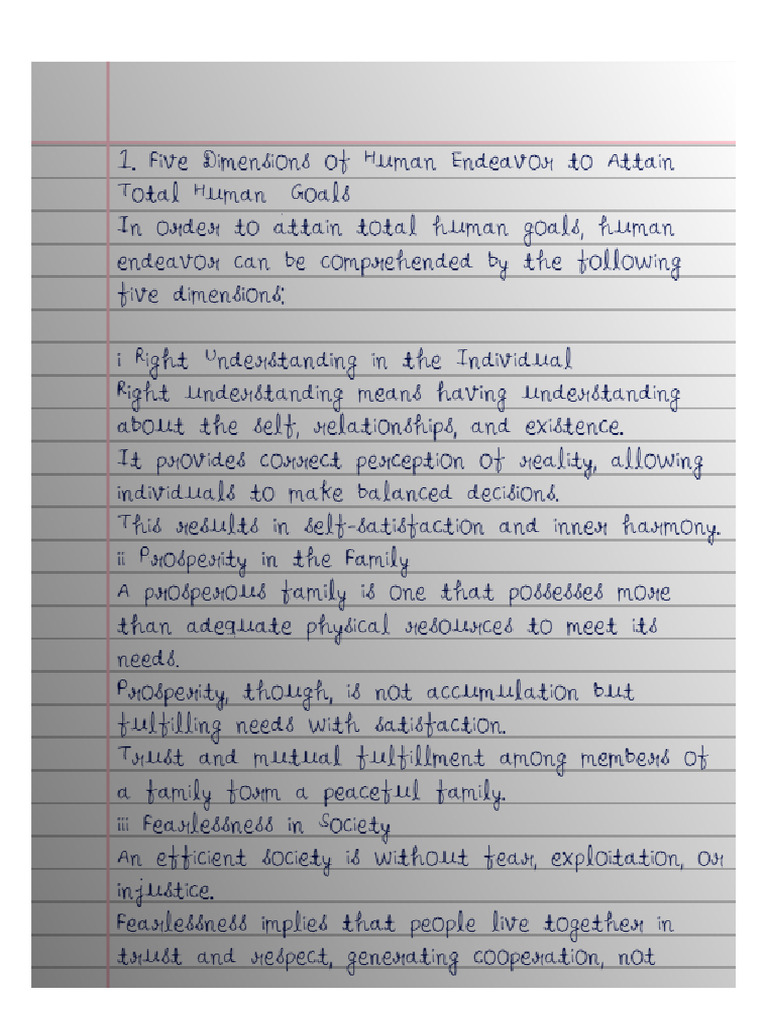 1. Five Dimensions of Human Endeavor to Attain
Total Human Goals
In order to attain total human goals, human
endeavor can be comprehended by the following
five dimensions:
i Right Understanding in the Individual
Right understanding means having understanding
about the self, relationships, and existence.
It provides correct perception of reality, allowing
individuals to make balanced decisions.
This results in self-satisfaction and inner harmony.
ii Prosperity in the Family
A prosperous family is one that possesses more
than adequate physical resources to meet its
needs.
Prosperity, though, is not accumulation but
fulfilling needs with satisfaction.
Trust and mutual fulfillment among members of
a family form a peaceful family.
iii Fearlessness in Society
An efficient society is without fear, exploitation, or
injustice.
Fearlessness implies that people live together in
trust and respect, generating cooperation, not